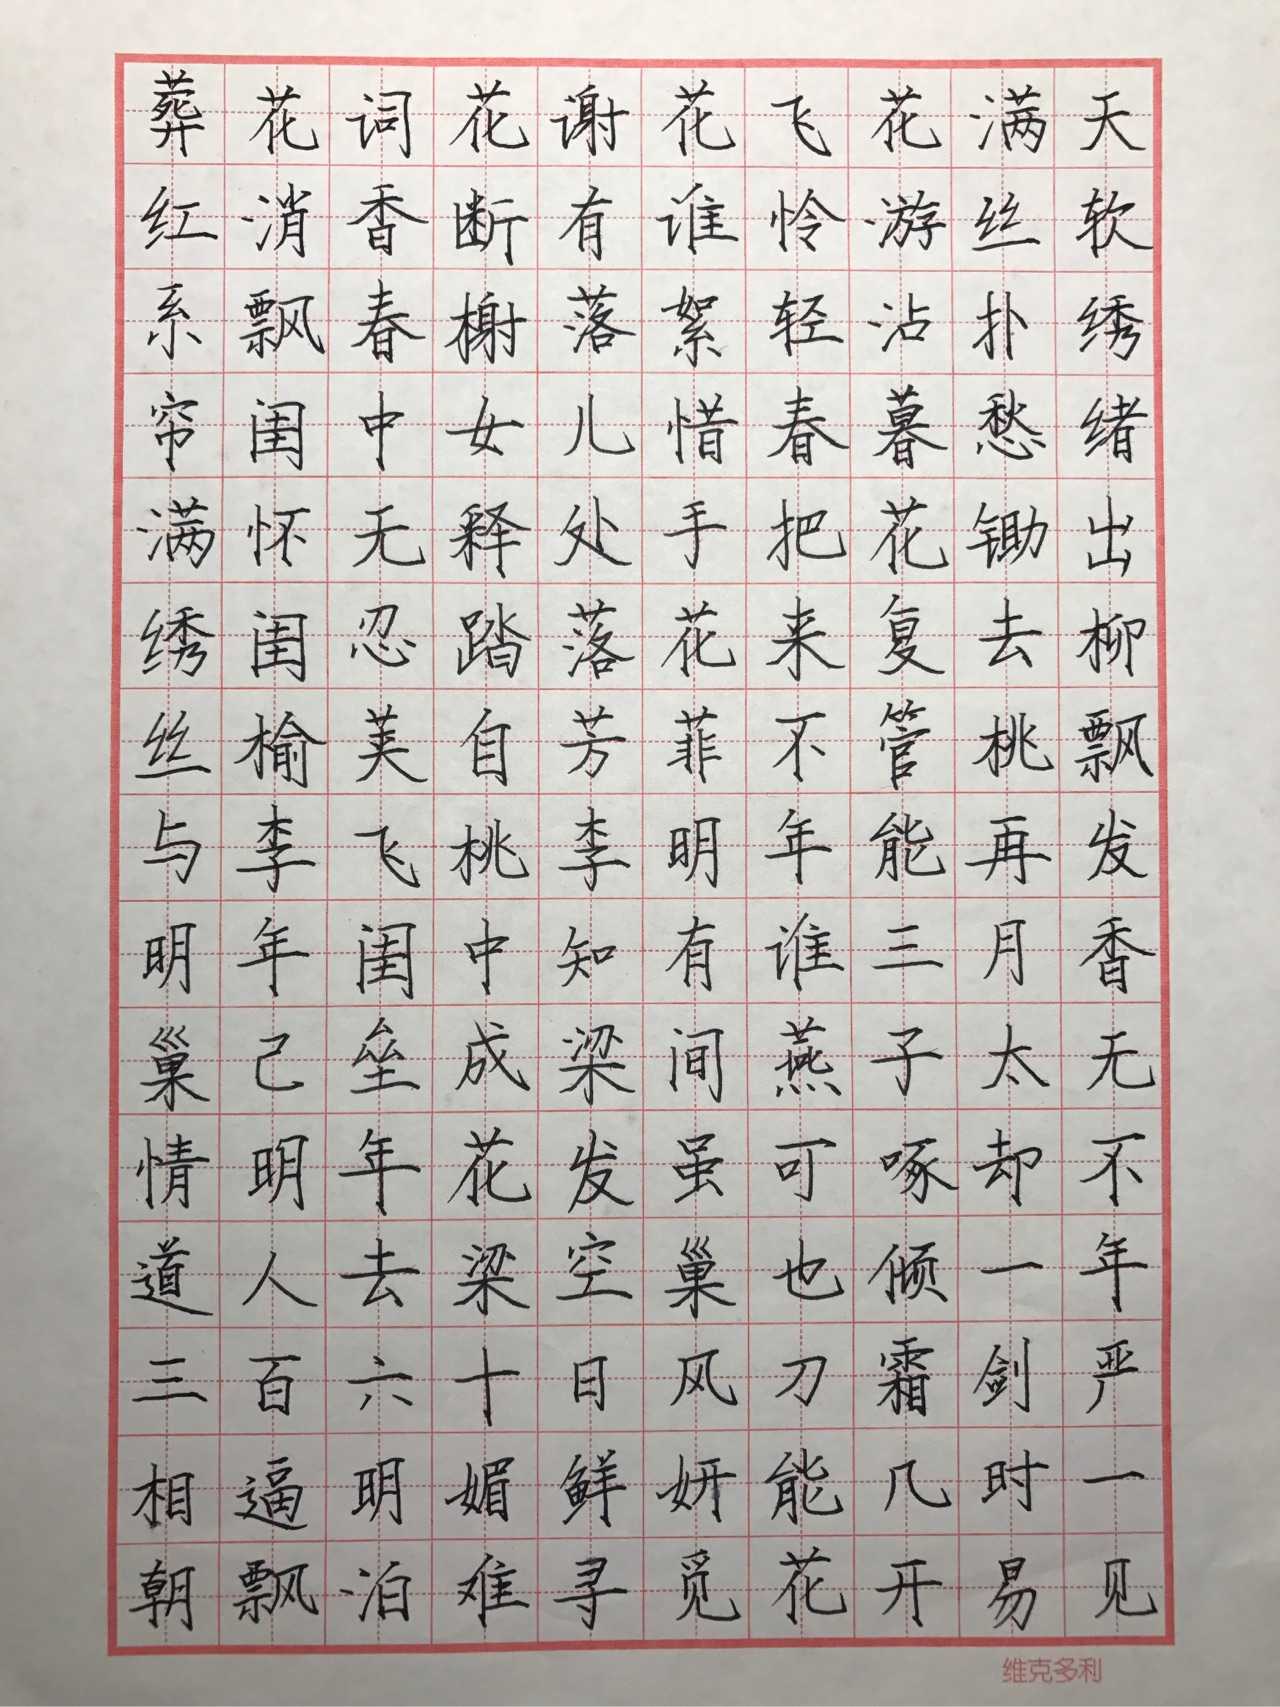 葬花词花谢花飞花满天
红消香断有谁怜游丝软
系飘春榭落絮轻沾扑绣
帘闺中女儿惜春暮愁绪
满怀无释处手把花锄出
绣闺忍踏落花来复去柳
丝榆荚自芳菲不管桃飘
与李飞桃李明年能再发
明年闺中知有谁三月香
巢己垒成梁间燕子太无
情明年花发虽可啄却不
道人去梁空巢也倾一年
三百六十日风刀霜剑严
相逼明媚鲜妍能几时一
朝飘泊难寻觅花开易见
维克多利